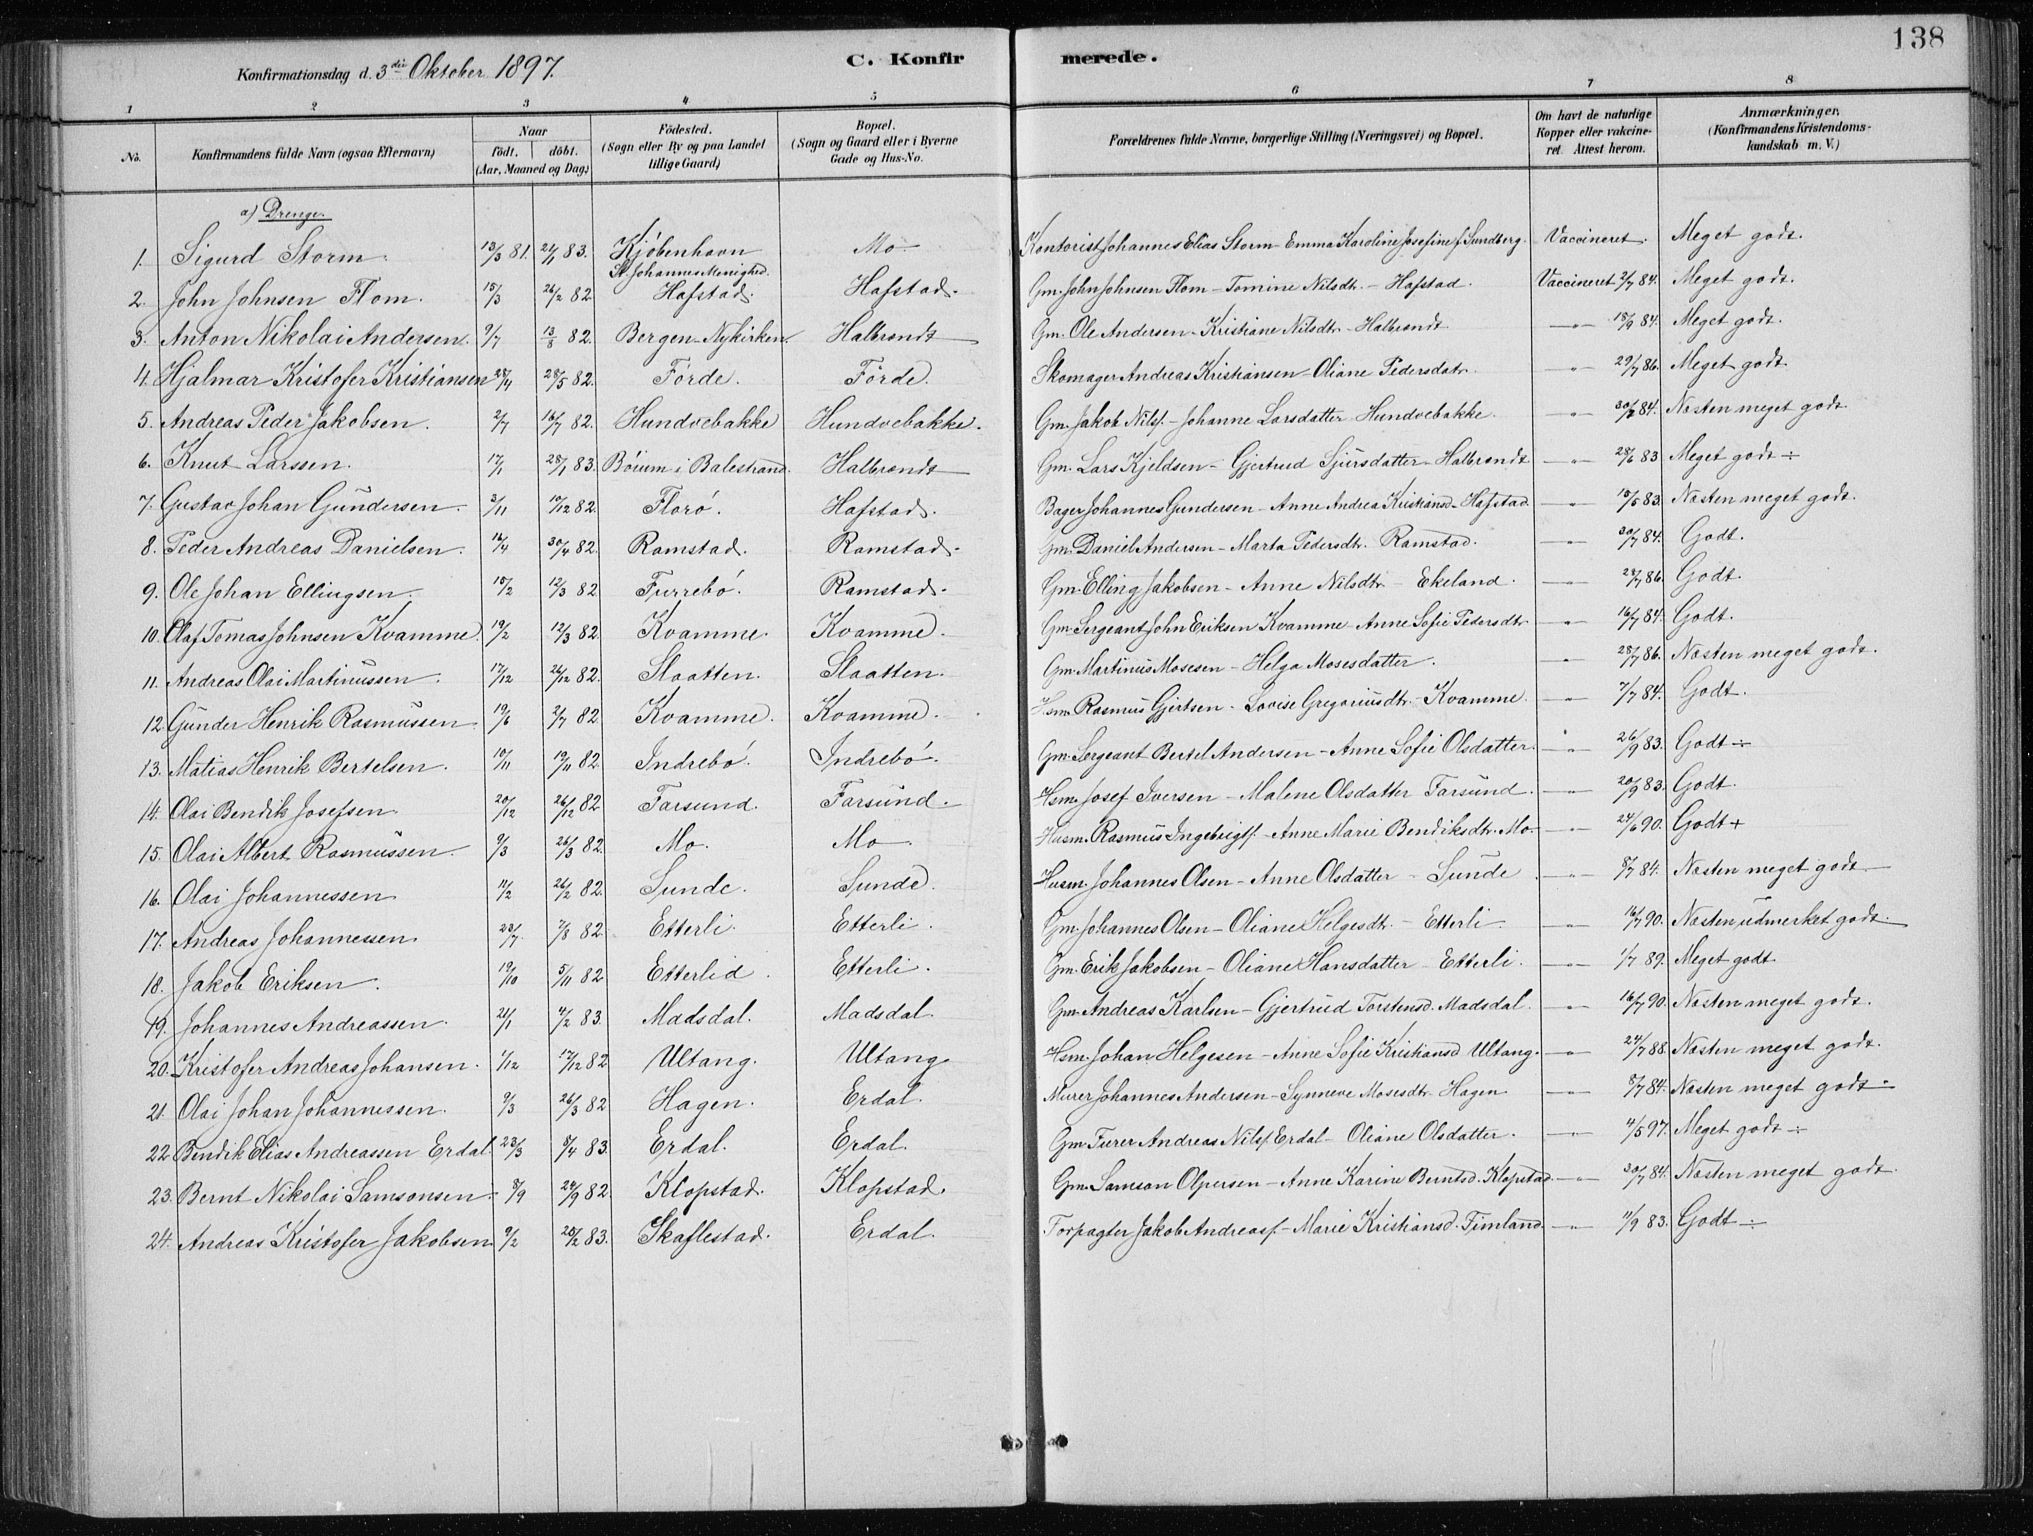 138
Konfirmationsdag d. 3die Oktober 1897. C. Konfirmerede.
1 2 3 4 5 6 7 8
No. Konfirmandens fulde Navn (ogsaa Efternavn) Naar födt. döbt. (Aar, Maaned og Dag) Födested. (Sogn eller By og paa Landet tillige Gaard) Bopæl. (Sogn og Gaard eller i Byerne Gade og Hus-No. Forældrenes fulde Navne, borgerlige Stilling (Næringsvei) og Bopæl. Om havt de naturlige Kopper eller vakcineret. Attest herom. Anmærkninger. (Konfirmandens Kristendomskundskab m. V.)
a) Drenge.
1. Sigurd Storm. 13/3 81. 21/1 83. Kjöbenhavn St. Johannes Menighed. Mo Kontorist Johannes Elias Storm - Emma Karoline Josefine f. Sundberg. Vaccineret. Meget godt.
2. John Johnsen Flom. 15/3 26/2 82. Hafstad. Hafstad. Gm. John Johnsen Flom - Tomine Nilsdtr. - Hafstad. Vaccineret 2/7 84. Meget godt.
3. Anton Nikolai Andersen. 9/7 13/8 82. Bergen - Nykirken. Halbrendt Gm. Ole Andersen - Kristiane Nilsdtr - Halbrendt — " — 18/9 84. Meget godt.
4. Hjalmar Kristofer Kristiansen 28/4 28/5 82. Förde. Förde. Skomager Andreas Kristiansen - Oliane Pedersdatr. — " — 29/7 86. Meget godt
5. Andreas Peder Jakobsen. 2/7 16/7 82. Hundvebakke Hundvebakke. Gm. Jakob Nilsf. - Johanne Larsdatter Hundvebakke. — " — 30/8 84. Næsten meget godt
6. Knut Larssen. 17/1 28/1 83. Böium i Balestrand. Halbrendt Gm. Lars Kjeldsen - Gjertrud Sjursdatter - Halbrendt — " — 28/6 83 Meget godt ÷
7. Gustav Johan Gundersen. 3/11 10/12 82. Florö. Hafstad. Bager Johannes Gundersen - Anne Andrea Kristiansd - Hafstad — " — 15/5 83. Næsten meget godt.
8. Peder Andreas Danielsen. 16/4 30/4 82. Ramstad. Ramstad. Gm. Daniel Andersen - Marta Pedersdtr. Ramstad. — " — 30/7 84. Godt.
9. Ole Johan Ellingsen. 15/2 12/3 82 Furrebö. Ramstad. Gm. Elling Jakobsen - Anne Nilsdtr - Ekeland. — " — 28/7 86. Godt.
10. Olaf Tomas Johnsen Kvamme. 19/2 12/3 82. Kvamme. Kvamme. Gm. Sergeant John Eriksen Kvamme - Anne Sofie Pedersdtr — " — 16/7 84. Godt.
11. Andreas Olai Martinussen. 17/12 26/12 82. Slaatten. Slaatten. Gm. Martinus Mosesen - Helga Mosesdatter. — " — 28/7 86. Næsten meget godt.
12. Gunder Henrik Rasmussen 19/6 2/7 82. Kvamme. Kvamme. Hsm. Rasmus Gjertsen - Lovise Gregoriusdtr. Kvamme. — " — 7/7 84. Godt.
13. Matias Henrik Bertelsen. 10/11 19/11 82. Indrebö. Indrebö. Gm. Sergeant Bertel Andersen - Anne Sofie Olsdatter. — " — 26/9 83. Godt ÷
14. Olai Bendik Josefsen 20/12 26/12 82. Farsund. Farsund. Hsm. Josef Iversen - Malene Olsdatter Farsund. — " — 20/9 83. Godt.
15. Olai Albert Rasmussen. 9/3 26/3 82. Mo. Mo. Husm. Rasmus Ingebrigtf. - Anne Marie Bendiksdtr. Mo. — " — 24/6 90. Godt +
16. Olai Johannessen 11/2 26/2 82. Sunde. Sunde. Husm. Johannes Olsen - Anne Olsdatter - Sunde — " — 8/7 84. Næsten meget godt
17. Andreas Johannessen 23/7 7/8 82. Etterli. Etterli. Gm. Johannes Olsen - Oliane Helgesdtr. - Etterli — " — 16/7 90. Næsten udmerket godt.
18. Jakob Eriksen. 19/10 5/11 82. Etterlid. Etterli. Gm. Erik Jakobsen - Oliane Hansdatter - Etterli. — " — 1/7 89. Meget godt
19. Johannes Andreassen. 21/1 4/2 83. Madsdal. Madsdal. Gm. Andreas Karlsen - Gjertrud Torstensd. Madsdal. — " — 16/7 90. Næsten meget godt.
20. Kristofer Andreas Johansen. 1/12 17/12 82 Ultang. Ultang Hsm. Johan Helgesen - Anne Sofie Kristiansd Ultang. — " — 24/7 88. Næsten meget godt.
21. Olai Johan Johannessen. 9/3 26/3 82 Hagen. Erdal. Murer Johannes Andersen - Synneve Mosesdtr Hagen — " — 8/7 84. Næsten meget godt.
22 Bendik Elias Andreassen Erdal. 23/3 8/4 83. Erdal. Erdal. Gm. Furer Andreas Nilsf. Erdal - Oliane Olsdatter. — " — 4/5 97. Meget godt ÷
23. Bernt Nikolai Samsonsen 8/9 24/9 82. Klopstad. Klopstad. Gm. Samson Olpersen - Anne Karine Berntsd. Klopstad — " — 30/7 84. Næsten meget godt
24. Andreas Kristofer Jakobsen 9/2 25/2 83. Skaflestad. Erdal. Forpagter Jakob Andreasf. - Marie Kristiansd. Fimland — " — 11/9 83. Godt ÷